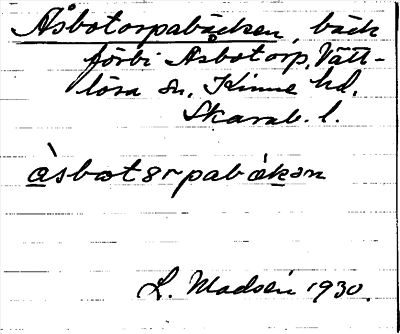 Åsbotorpabäcken, bäck
förbi Åsbotorp, Vätt-
lösa sn, Kinne hd,
Skarab. l.
àsbαt8rpabákən
L. Madsén 1930.